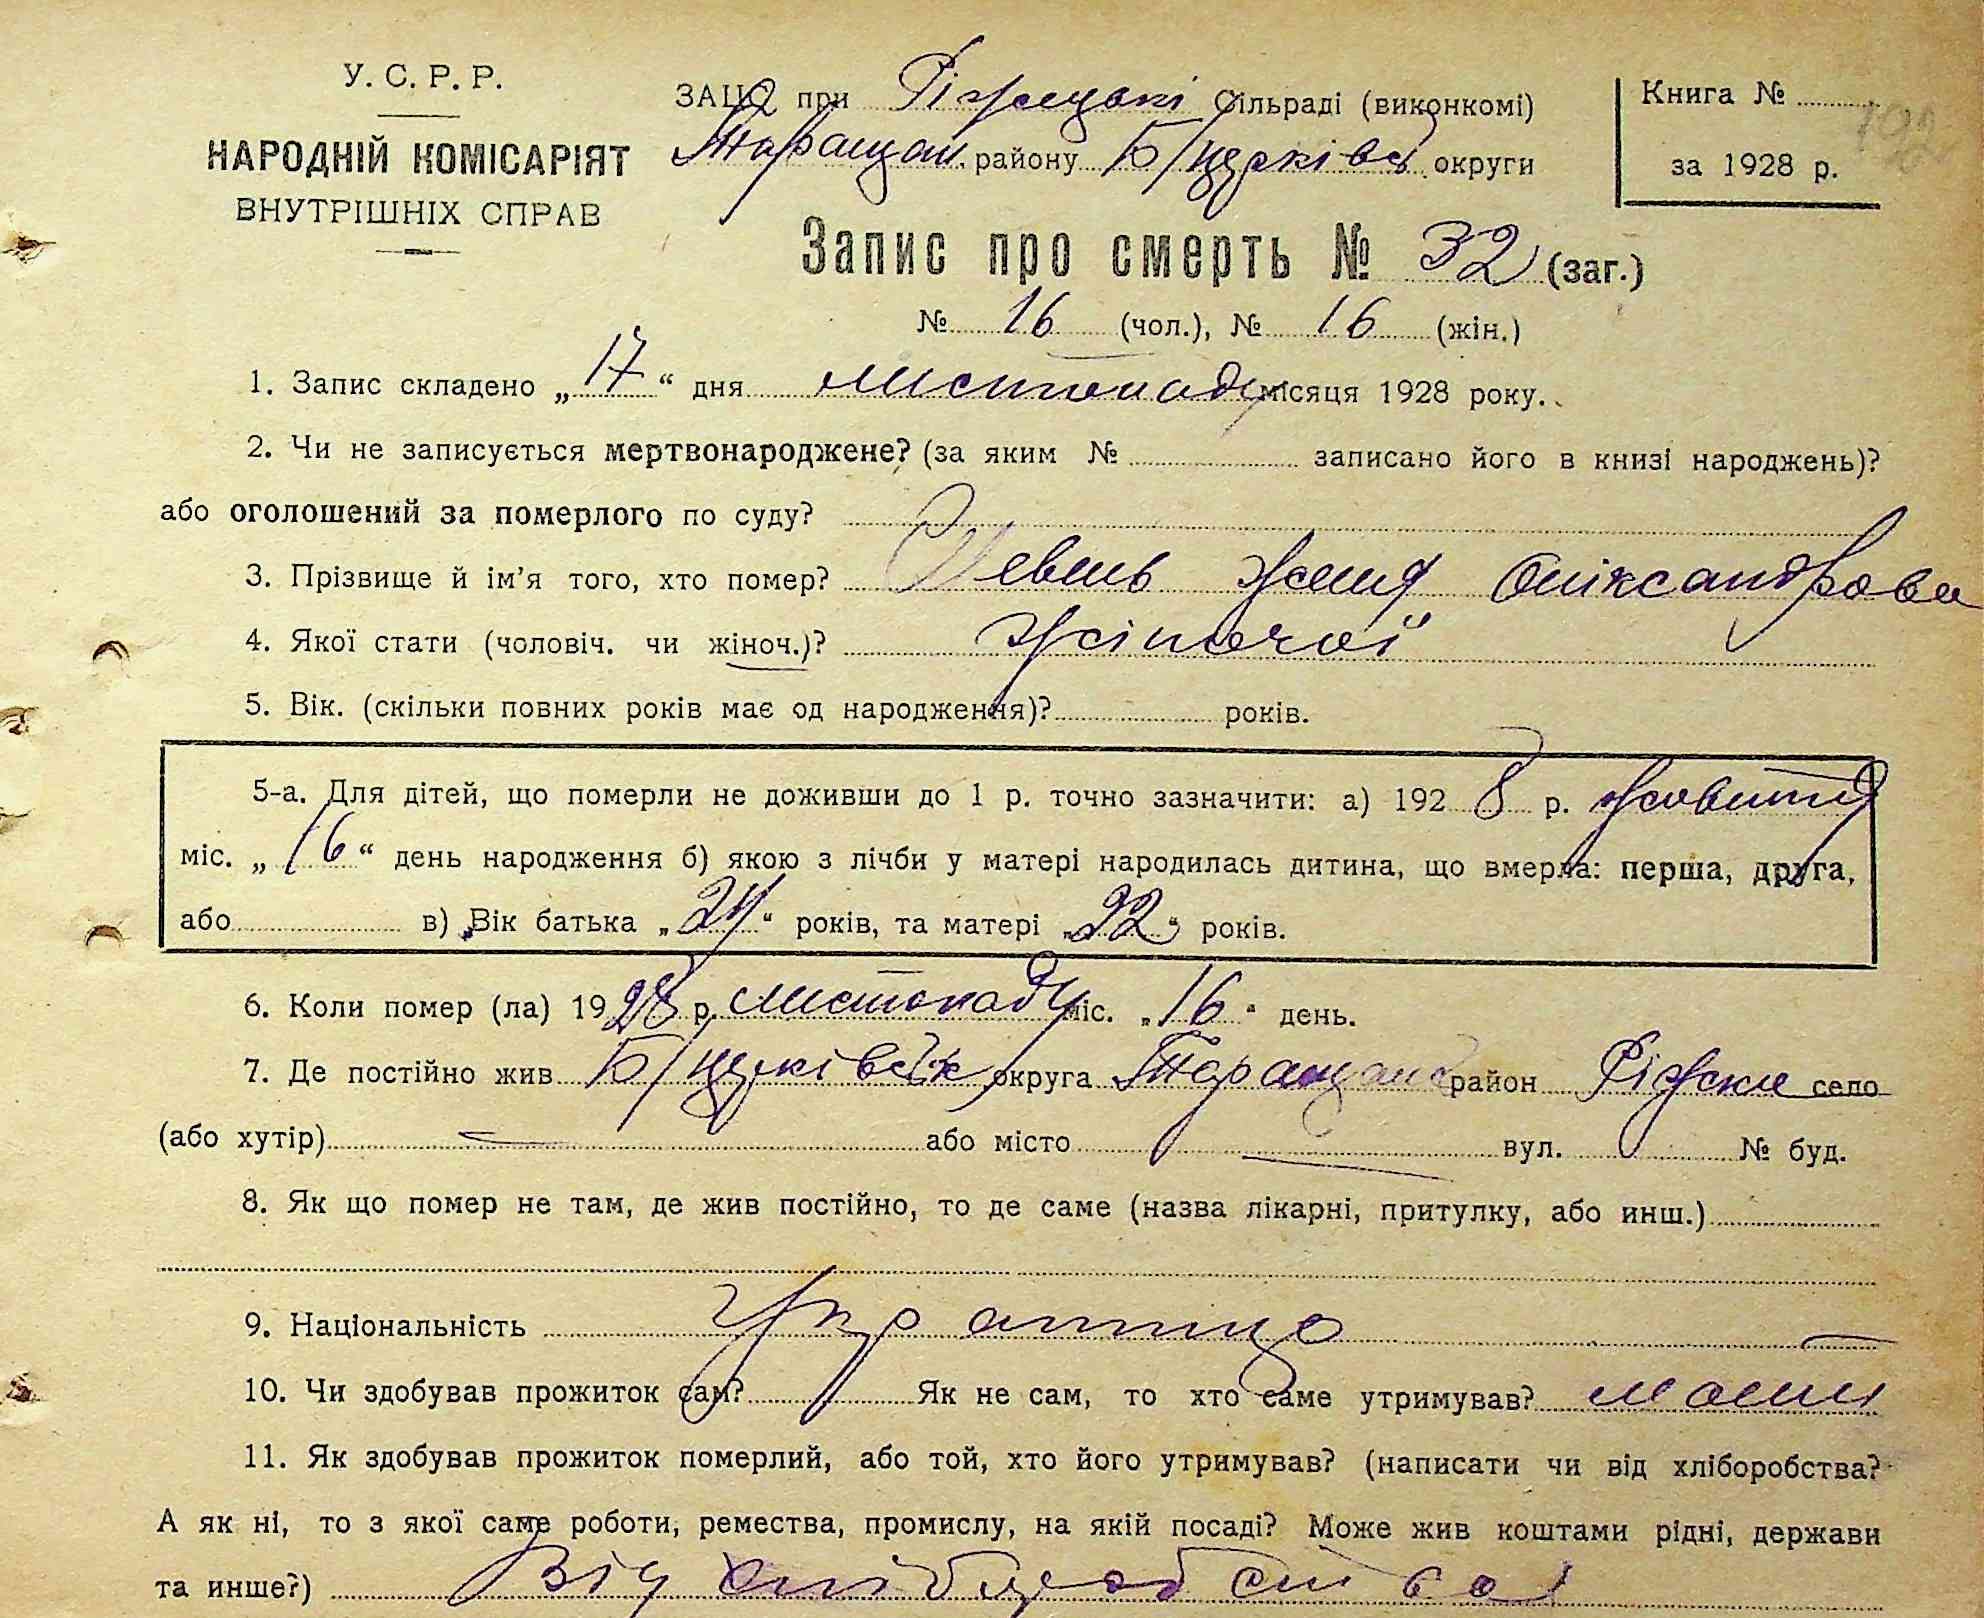 У. С. Р. Р.
НАРОДНІЙ КОМІСАРІЯТ
ВНУТРІШНІХ СПРАВ
ЗАЦС при Ріжецькі Сільраді (виконкомі)
Таращан. району Б/церківс округи
Книга №
за 1928 р.
Запис про смерть № 32 (заг.)
№ 16 (чол.), № 16 (жін.)
1. Запис складено „17“ дня листопаду місяця 1928 року.
2. Чи не записується мертвонароджене? (за яким № записано його в книзі народжень)?
або оголошений за померлого по суду?
3. Прізвище й ім'я того, хто помер? Олександрова
4. Якої стати (чоловіч. чи жіноч.)? жіночої
5. Вік. (скільки повних років має од народження)? років.
5-а. Для дітей, що померли не доживши до 1 р. точно зазначити: а) 1928 р. жовтня
міс. „16“ день народження б) якою з лічби у матері народилась дитина, що вмерла: перша, друга,
або в) Вік батька „24“ років, та матері „22“ років.
6. Коли помер (ла) 1928 р. листопаду міс. „16“ день.
7. Де постійно жив Б/церківськ округа Таращанс район Ріжки село
(або хутір) — або місто — вул. № буд.
8. Як що помер не там, де жив постійно, то де саме (назва лікарні, притулку, або инш.)
9. Національність
10. Чи здобував прожиток сам? Як не сам, то хто саме утримував? мати
11. Як здобував прожиток померлий, або той, хто його утримував? (написати чи від хліборобства?
А як ні, то з якої саме роботи, ремества, промислу, на якій посаді? Може жив коштами рідні, держави
та инше?) Від хліборобства